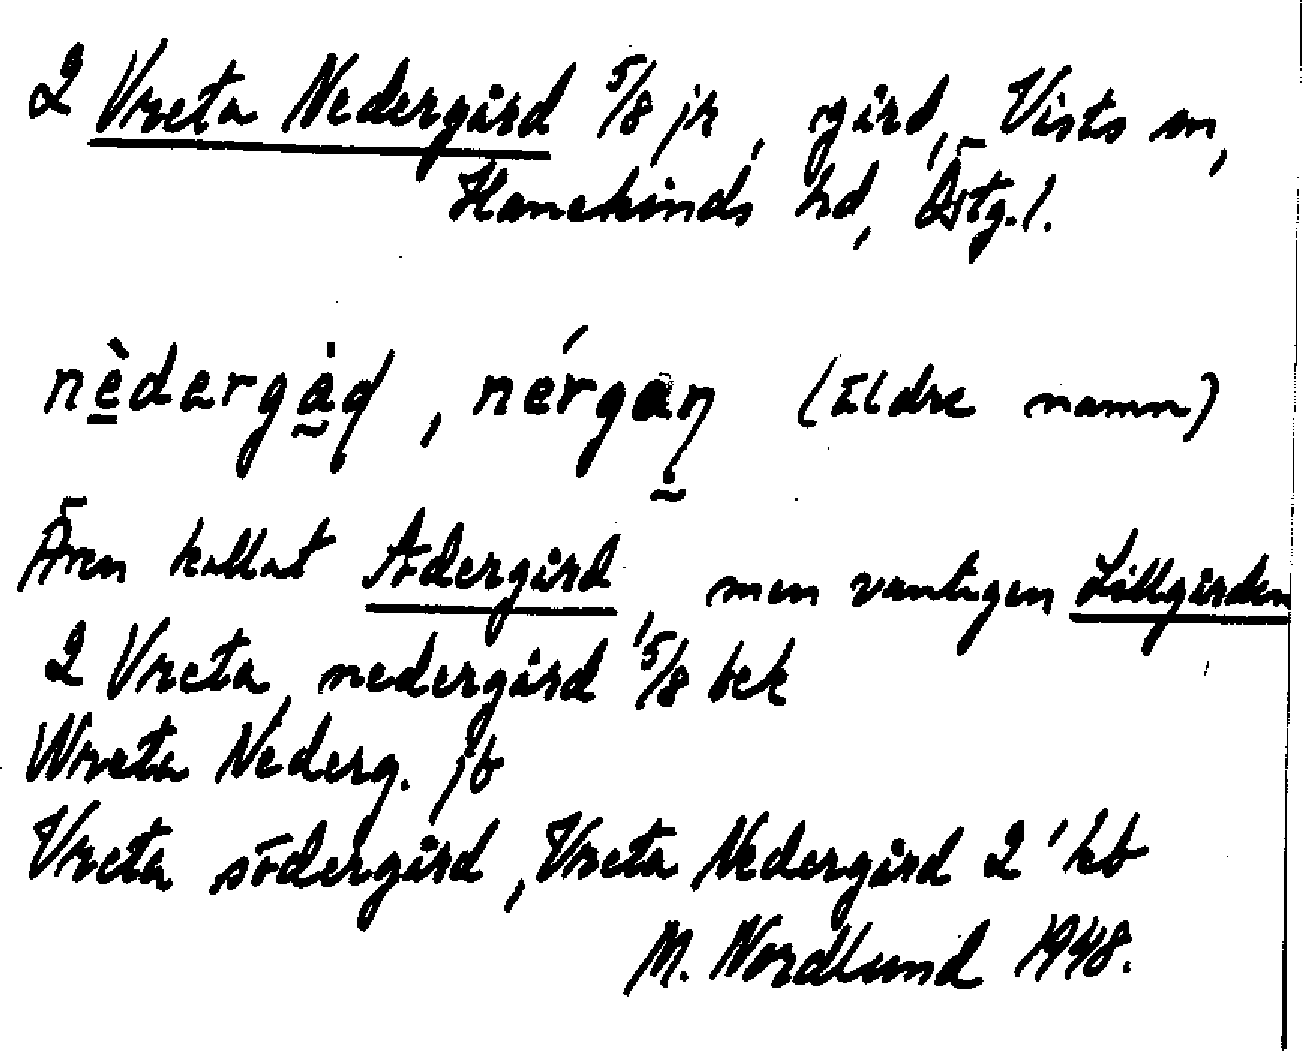 2 Vreta Nedergård 5/8 jr, gård, Vists sn,
Hanekinds hd, Östg.l.
nèdergåd, nérgan (Äldre namn)
Även kallat Södergård, men vanligen Lillgården
2 Vreta, nedergård 5/8 bek
Wreta Nederg. jb
Vreta södergård, Vreta Nedergård 2' hb
M. Nordlund 1948.